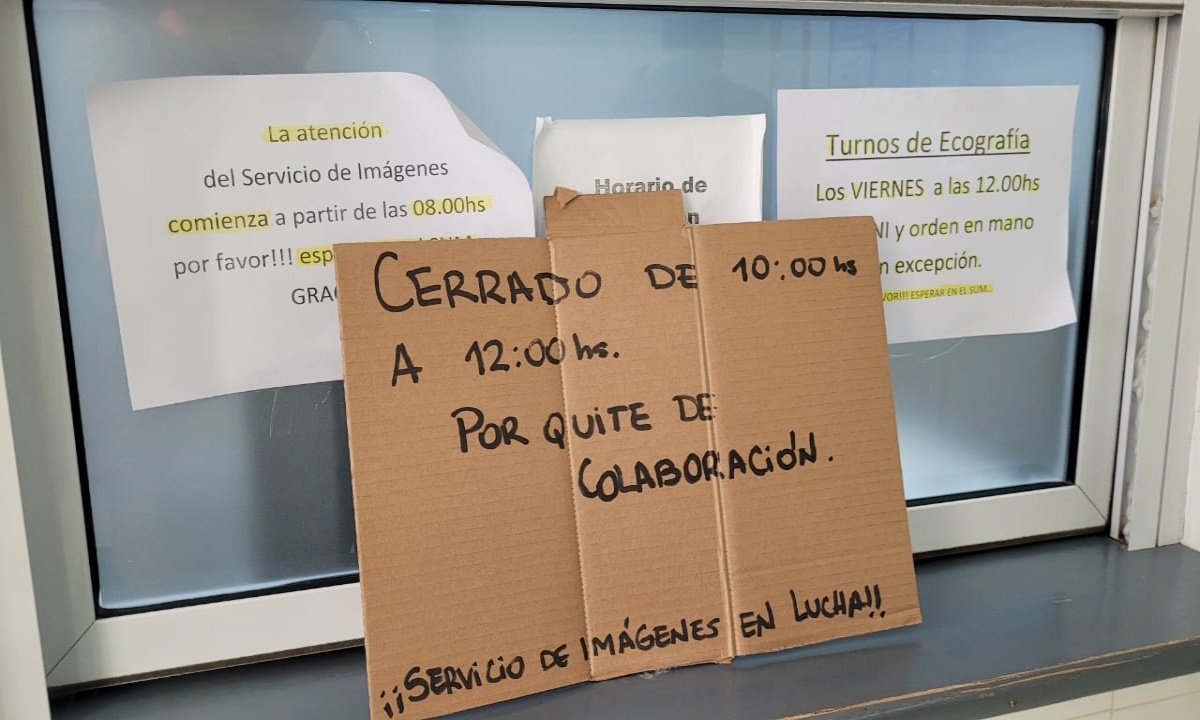 La atención
del Servicio de Imágenes
comienza a partir de las 08.00hs
por favor!!!
Horario de
Turnos de Ecografía
Los VIERNES a las 12.00hs
y orden en mano
excepción.
ESPERAR EN EL SUM...
CERRADO DE 10:00 hs
A 12:00 hs.
POR QUITE DE
COLABORACIÓN.
¡¡SERVICIO DE IMÁGENES EN LUCHA!!